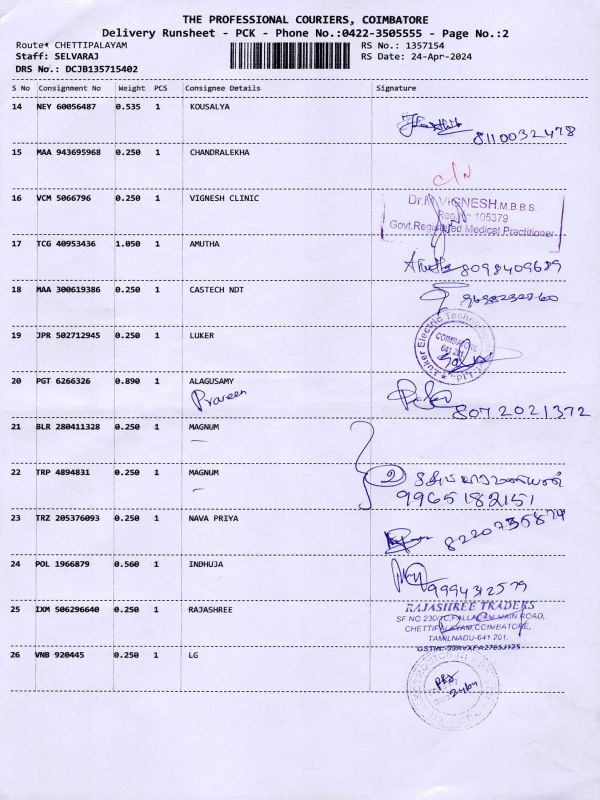 THE PROFESSIONAL COURIERS, COIMBATORE
Delivery Runsheet - PCK - Phone No.:0422-3505555 - Page No.:2
Route* CHETTIPALAYAM RS No.: 1357154
Staff: SELVARAJ RS Date: 24-Apr-2024
DRS No.: DCJB135715402
S No Consignment No Weight PCS Consignee Details Signature
14 NEY 60056487 0.535 1 KOUSALYA
8110032478
15 MAA 943695968 0.250 1 CHANDRALEKHA
C/N
16 VCM 5066796 0.250 1 VIGNESH CLINIC
Dr. VIGNESH, M.B.B.S.
Reg. No 105379
Govt. Registered Medical Practitioner
17 TCG 40953436 1.050 1 AMUTHA
8098409689
18 MAA 300619386 0.250 1 CASTECH NDT
19 JPR 502712945 0.250 1 LUKER
Luker Electric
COIMBATORE
641 201
20 PGT 6266326 0.890 1 ALAGUSAMY
Praveen
8072021372
21 BLR 280411328 0.250 1 MAGNUM
22 TRP 4894831 0.250 1 MAGNUM
2
9965182151
23 TRZ 205376093 0.250 1 NAVA PRIYA
24 POL 1966879 0.560 1 INDHUJA
25 IXM 506296640 0.250 1 RAJASHREE
RAJASHREE TRADERS
SF NO 230/1C, PALLADAM MAIN ROAD,
CHETTIPALAYAM, COIMBATORE,
TAMILNADU-641 201.
26 VNB 920445 0.250 1 LG